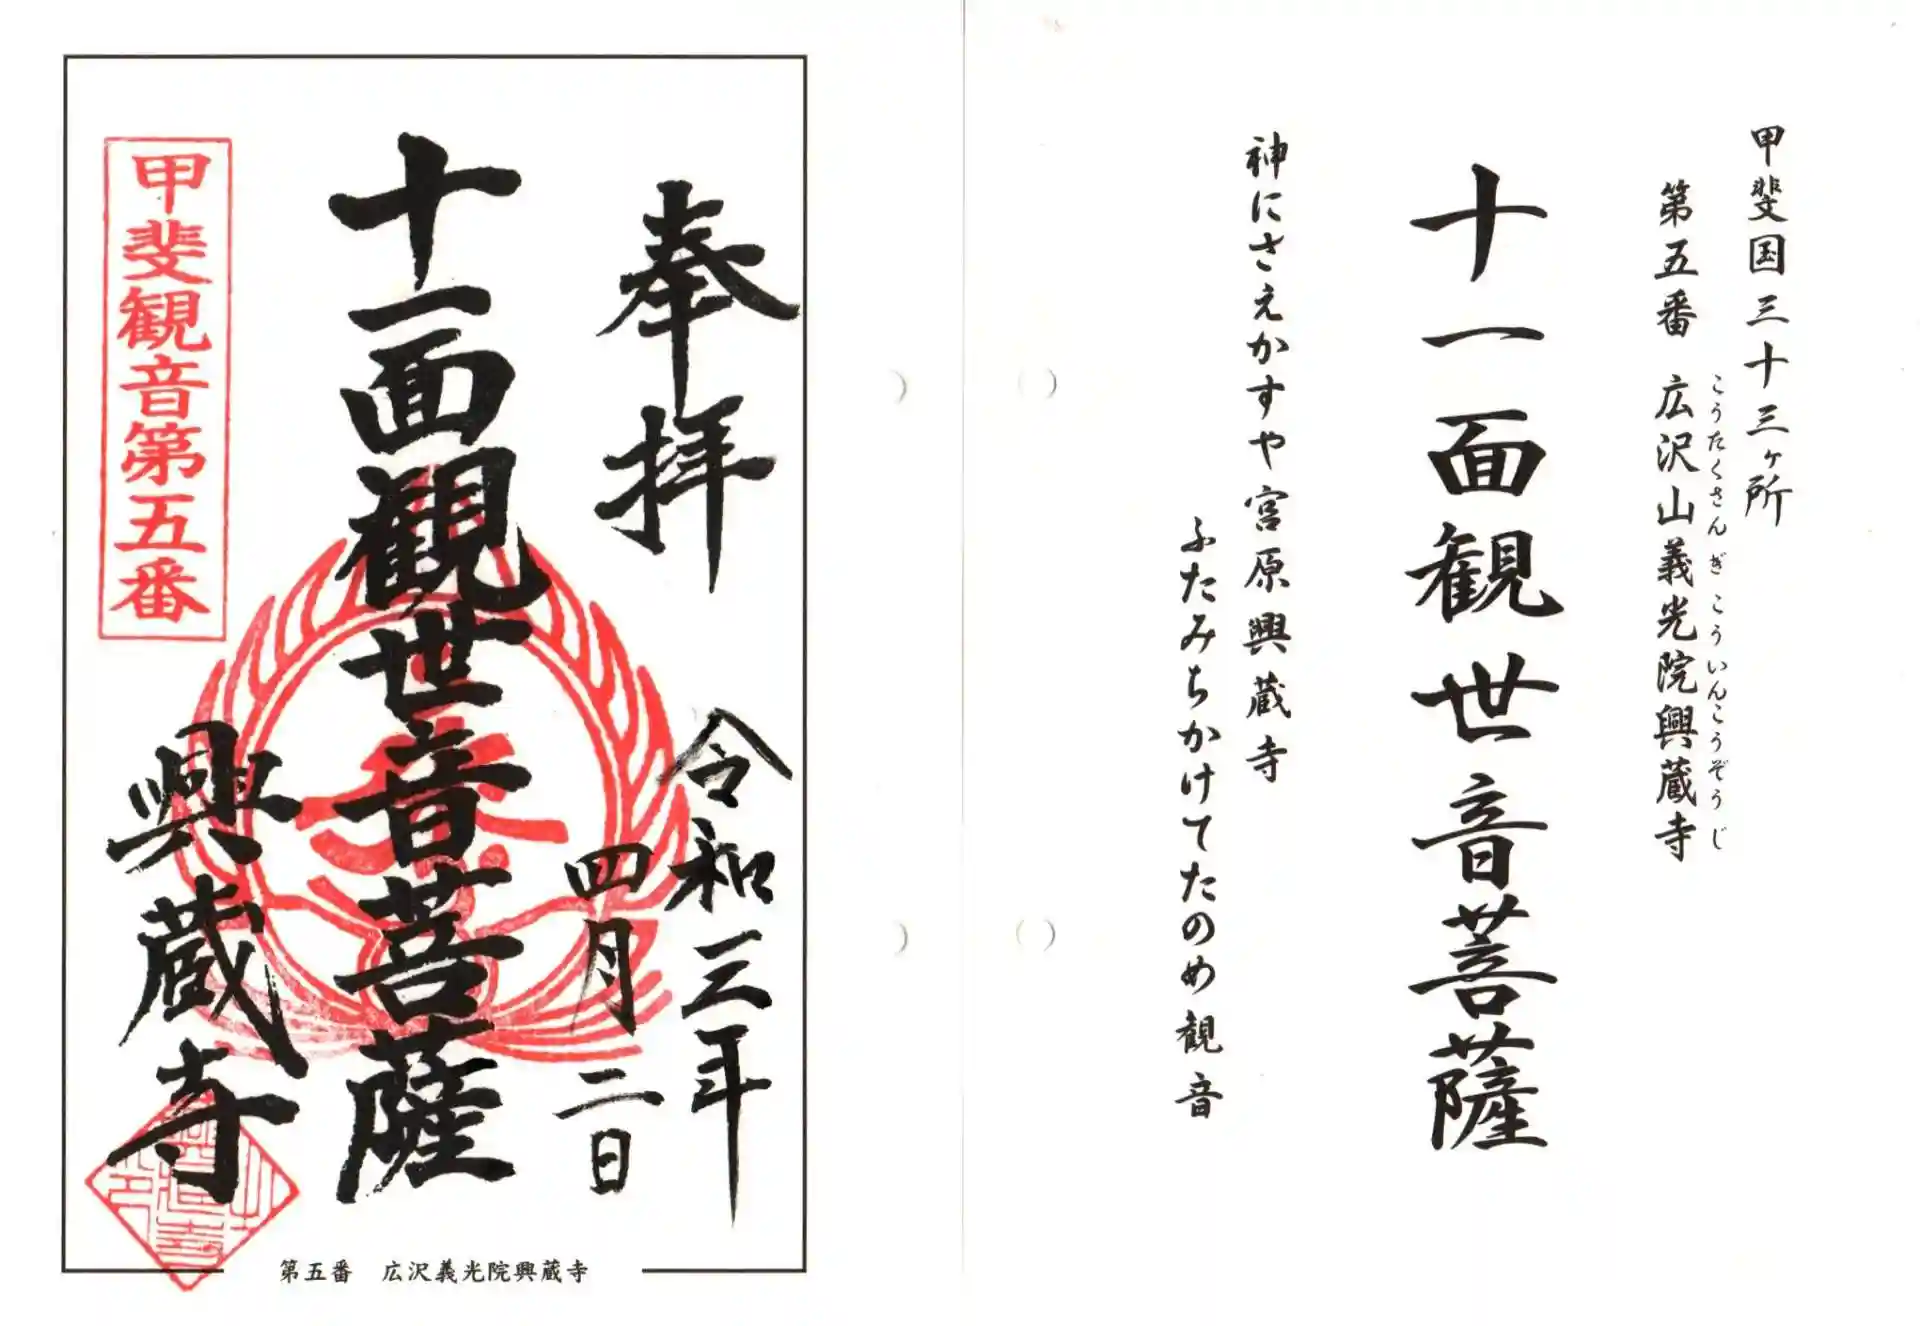 甲斐国三十三ヶ所
第五番 広沢山義光院興蔵寺
こうたくさん ぎこういんこうぞうじ
十一面観世音菩薩
神にさえかすや宮原興蔵寺
ふたみちかけてたのめ観音
奉拝
令和三年
四月二日
十一面観世音菩薩
甲斐観音第五番
興蔵寺
第五番 広沢義光院興蔵寺